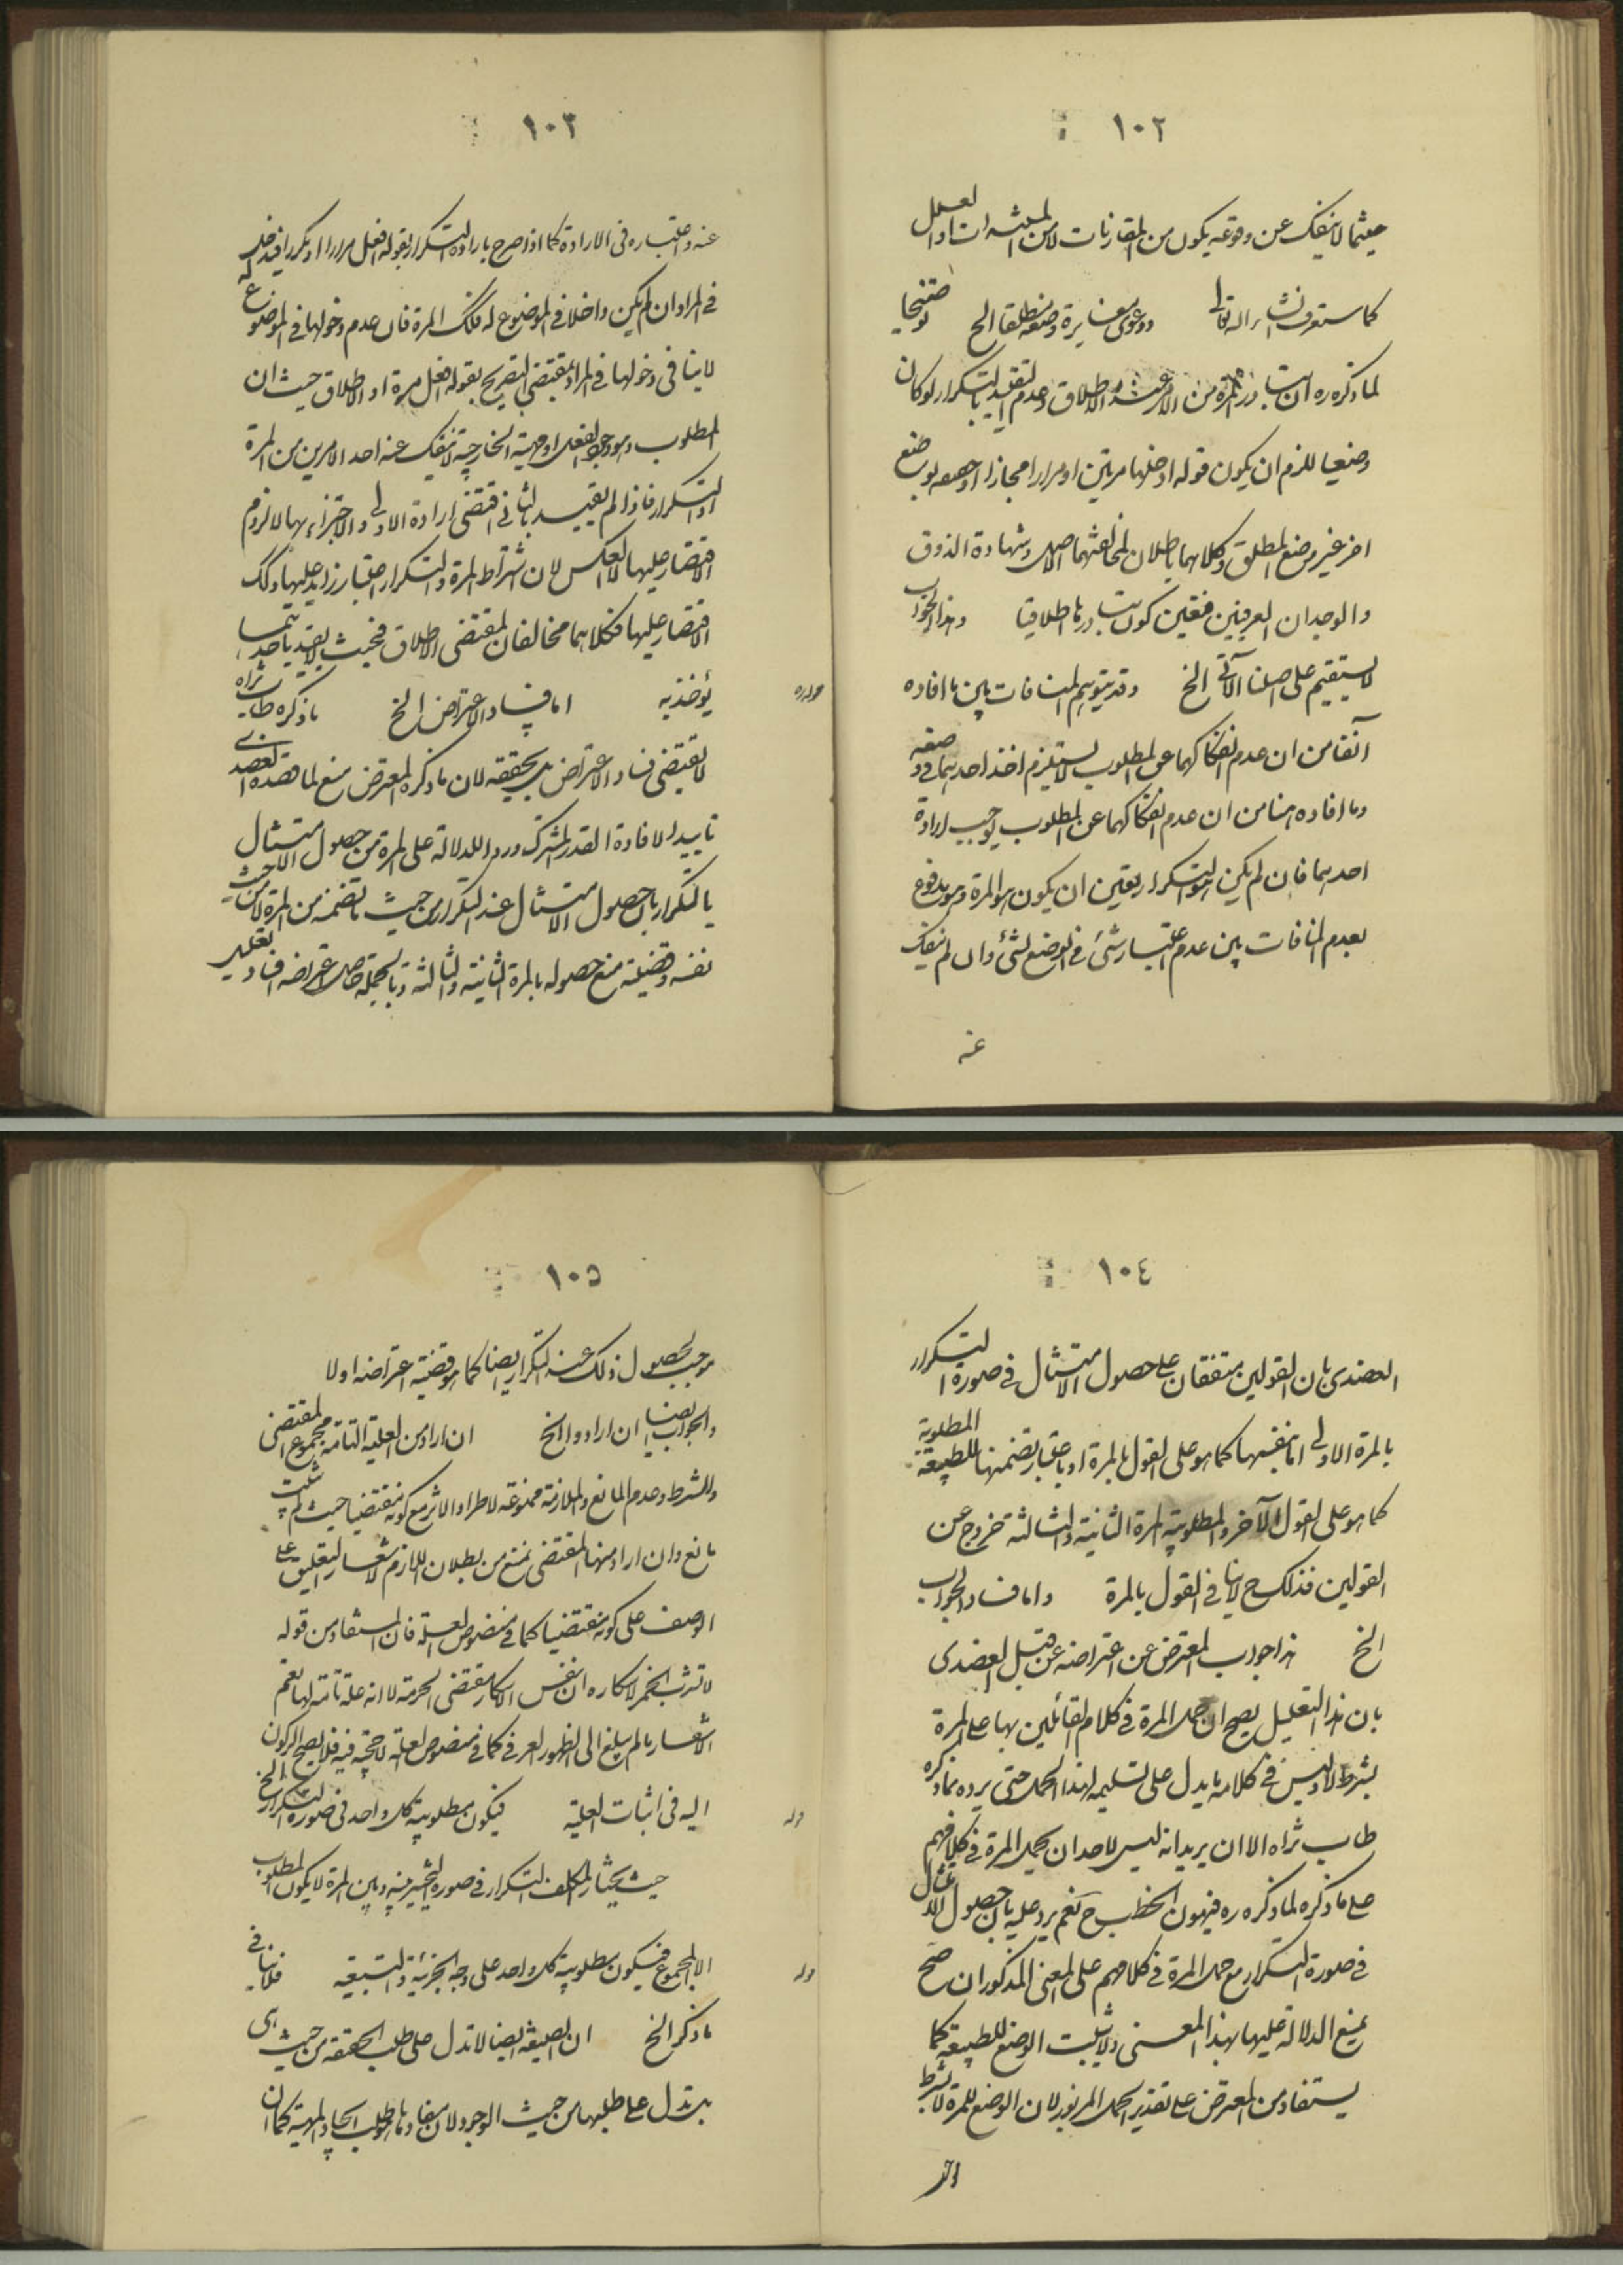 ١٠٢
حيثما لا ينفك عن وقوعه يكون من المقارنات لا من
كما ستعرف انشاء الله تعالى ودعوى مغايرة وضعه مطلقا الخ توضيحا
لما ذكره ره ان تبادر المرة من الامر عند الاطلاق وعدم التقييد بالتكرار لو كان
وضعيا للزم ان يكون قوله ادخلها مرتين او مرارا مجازا او وضعه بوضع
اخر غير وضع المطلق وكلاهما باطلان لمخالفتهما الاصل وشهادة الذوق
والوجدان العرفيين فتعين كون تبادرها اطلاقيا وهذا الجواب
لا يستقيم على اصلنا الآتى الخ وقد يتوهم المنافات بين ما افاده
آنفا من ان عدم انفكاكهما عن المطلوب لا يستلزم اخذ احدهما فى وضعه
وما افاده هنا من ان عدم انفكاكهما عن المطلوب يوجب ارادة
احدهما فان لم يكن هو التكرار يتعين ان يكون هو المرة وهو مدفوع
بعدم المنافات بين عدم اعتبار شئ فى الوضع لشئ وان لم ينفك
عنه
١٠٣
عنه واعتباره فى الارادة كما اذا صرح بارادة التكرار بقوله افعل مرارا او مكررا فيدخل
فى المراد وان لم يكن داخلا فى الموضوع له فكذلك المرة فان عدم دخولها فى الموضوع له
لا ينافى دخولها فى المراد بمقتضى التصريح بقوله افعل مرة او الاطلاق حيث ان
المطلوب وهو وجود الفعل او مهيته الخارجية لا ينفك عنه احد الامرين من المرة
او التكرار فاذا لم يقيد بالثانى اقتضى ارادة الاولى والاجتزاء بها لا لزوم
الاقتصار عليها لا العكس لان اشتراط المرة والتكرار اعتبار زايد عليها وكذلك
الاقتصار عليها فكلاهما مخالفان لمقتضى الاطلاق فحيث لا يقيد باحديهما
يؤخذ به اما فساد الاعتراض الخ ما ذكره طاب ثراه
لا يقتضى فساد الاعتراض بل يحققه لان ما ذكره المعترض منع لما قصده العضدى
تاييدا لافادة القدر المشترك وردا للدلالة على المرة من حصول الامتثال
بالتكرار بان حصول الامتثال عند التكرار من حيث ما تضمنه من المرة لا من حيث
نفسه وقضيته منع حصوله بالمرة الثانية والثالثة وبالجملة حاصل اعتراضه افساد تعليل
١٠٤
العضدى بان القولين متفقان على حصول الامتثال فى صورة التكرار
بالمرة الاولى اما بنفسها كما هو على القول بالمرة او باعتبار تضمنها للطبيعة المطلوبة
كما هو على القول الآخر والمطلوبية للمرة الثانية والثالثة خروج عن
القولين فذلك ح لا ينافى القول بالمرة واما فساد الجواب
الخ هذا جواب المعترض عن اعتراضه عن قبل العضدى
بان هذا التعليل يصح ان حمل المرة فى كلام القائلين بها على المرة
بشرط لا وليس فى كلامه ما يدل على تسليمه لهذا الحمل حتى يرده بما ذكره
طاب ثراه الا ان يريد انه ليس لاحد ان يحمل المرة فى كلامهم
على ما ذكره لما ذكره ره فيهون الخطب ح نعم يرد عليه بان حصول الامتثال
فى صورة التكرار مع حمل المرة فى كلامهم على المعنى المذكور ان صح
يمنع الدلالة عليها بهذا المعنى ولا يثبت الوضع للطبيعة كما
يستفاد من المعترض على تقدير الحمل المزبور لان الوضع للمرة لا بشرط
١٠٥
موجب لحصول ذلك عند التكرار ايضا كما هو قضية اعتراضه اولا
والجواب ايضا ان ارادوا الخ ان ارادوا من العلية التامة مجموع المقتضى
والشرط وعدم المانع والملازمة ممنوعة لاطراد الاثر مع كونه مقتضيا حيث لم يثبت
مانع وان اراد منها المقتضى نمنع من بطلان اللازم لاشعار التعليق على
الوصف على كونه مقتضيا كما فى منصوص العلة فان المستفاد من قوله
لا تشرب الخمر لاسكاره ان نفس الاسكار مقتضى الحرمة لا انه علة تامة لها نعم
الاشعار ما لم يبلغ الى الظهور العرفى كما فى منصوص العلة لا حجية فيه فلا يصح الركون
اليه فى اثبات العلية فيكون مطلوبية كل واحد فى صورة التكرار الخ
قوله
حيث يختار المكلف التكرار فى صورة التخيير بينه وبين المرة لا يكون المطلوب
الا المجموع فيكون مطلوبية كل واحد على وجه الجزئية والتبعية فلا ينافى
قوله
ما ذكر الخ ان الصيغة ايضا لا تدل على طلب الحقيقة من حيث هى
بل تدل على طلبها من حيث الوجود لان مفادها طلب ايجاد المهية كما ان